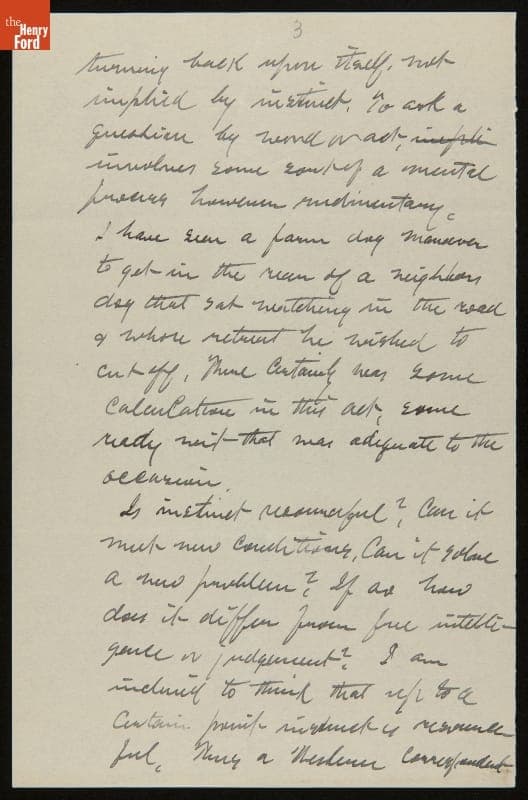 the
Henry
Ford
3
turning back upon itself, not
implied by instinct. To ask a
question by word or act, impli
involves some sort of a mental
process however rudimentary.
I have seen a farm dog maneuver
to get in the rear of a neighbors
dog that sat watching in the road
& whose retreat he wished to
cut off. There certainly was some
calculation in this act, some
ready wit that was adequate to the
occasion.
Is instinct resourceful? Can it
meet new conditions, Can it solve
a new problem? If so how
does it differ from free intelli-
gence or judgement? I am
inclined to think that up to a
certain point instinct is resource
ful. Thus a Western correspondent